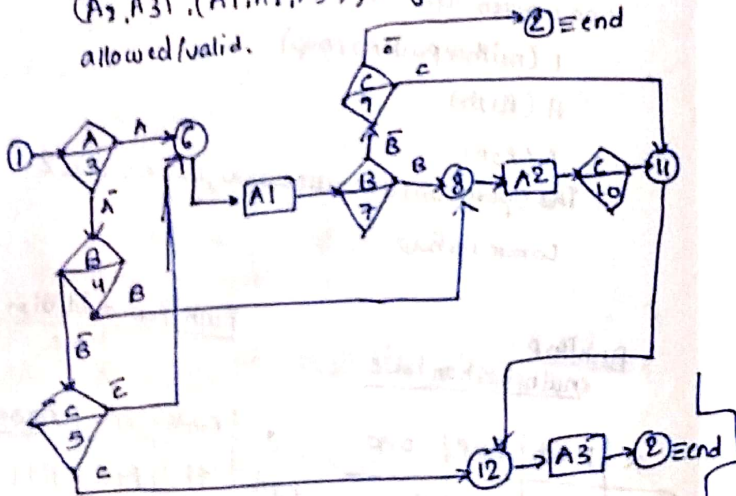 (A2, A3)
allowed/valid.
2 ≡ end
C̄
C
9
C
B̄
1
A
3
A
6
A1
B
7
B
8
A2
C
10
11
Ā
B
4
B
B̄
C
5
C̄
C
12
A3
2 ≡ end